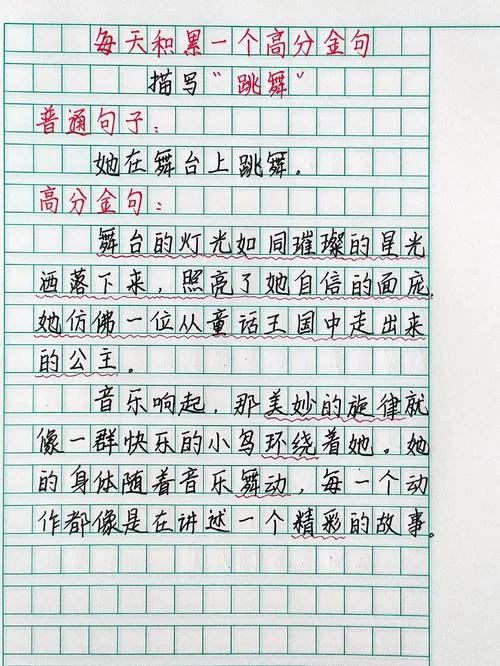 每天积累一个高分金句
描写“跳舞”
普通句子：
她在舞台上跳舞。
高分金句：
舞台的灯光如同璀璨的星光
洒落下来，照亮了她自信的面庞，
她仿佛一位从童话王国中走出来
的公主。
音乐响起，那美妙的旋律就
像一群快乐的小鸟环绕着她。她
的身体随着音乐舞动，每一个动
作都像是在讲述一个精彩的故事。